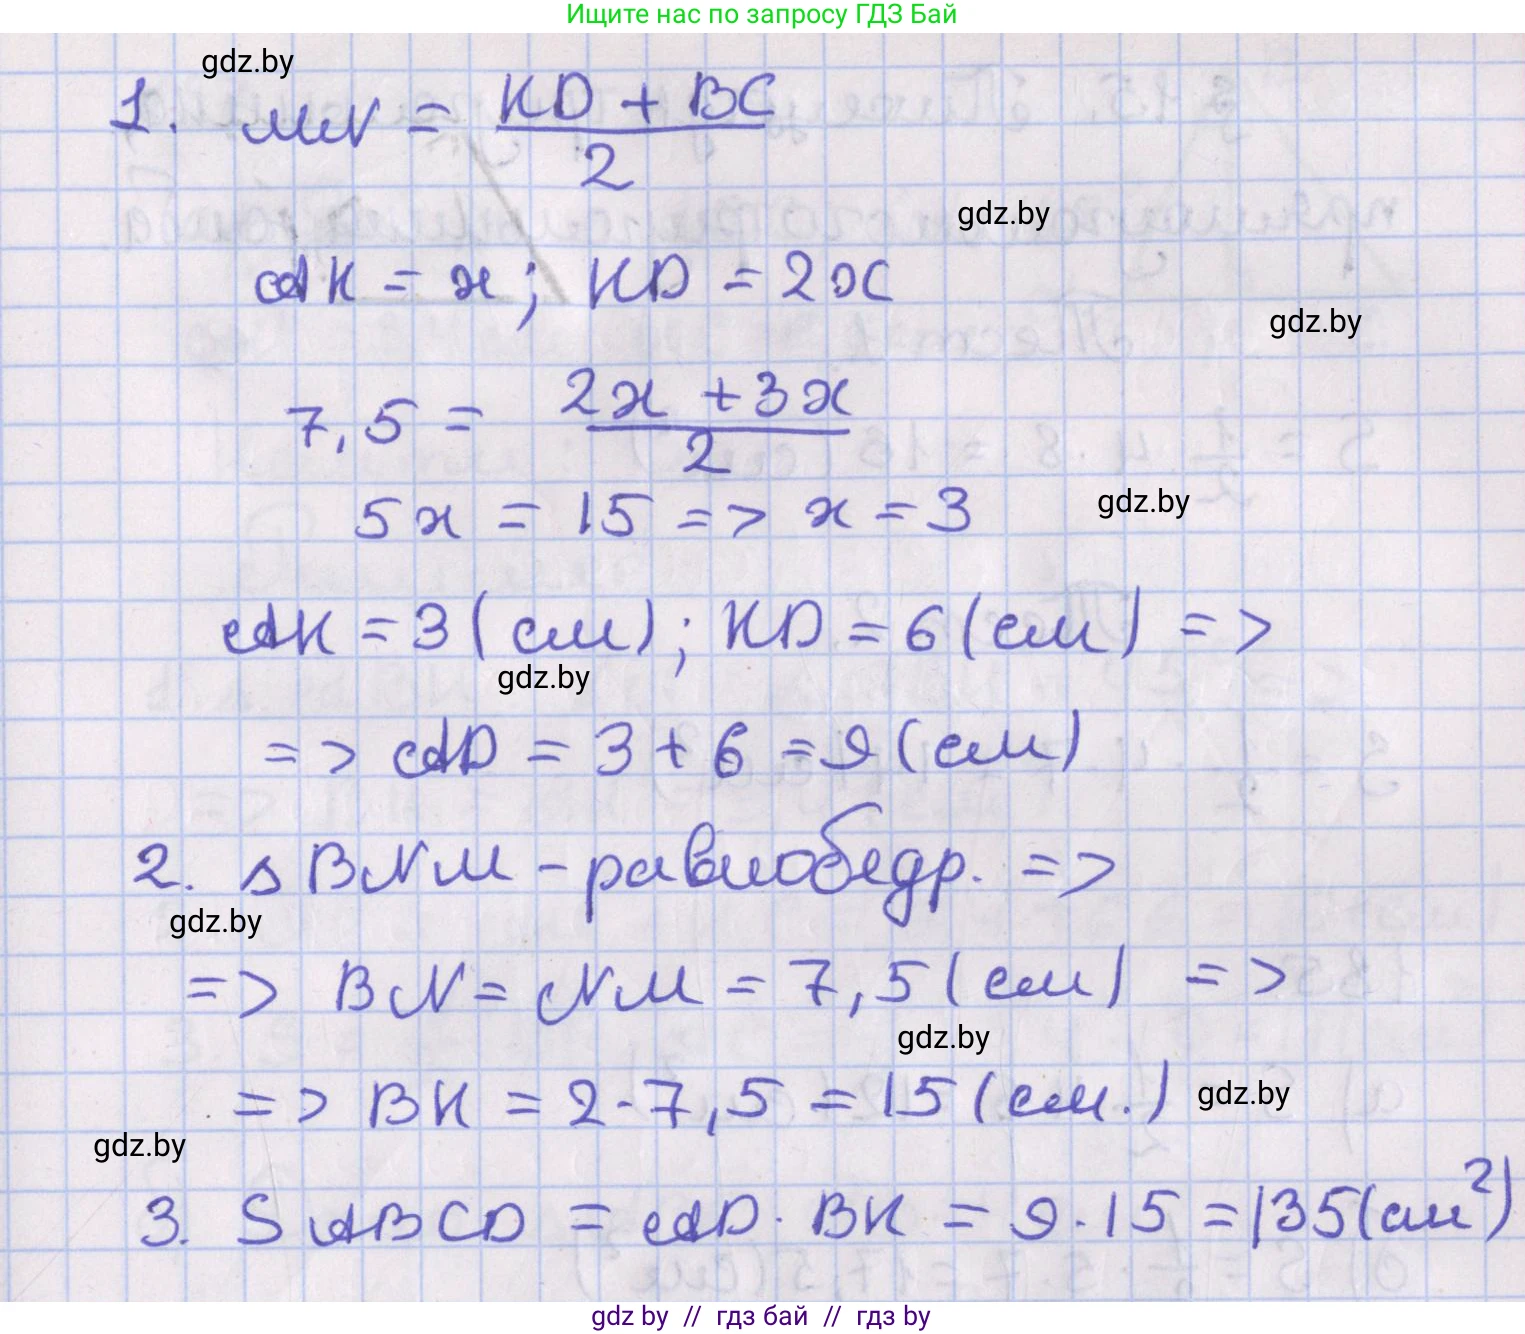 Ищите нас по запросу ГДЗ Бай
gdz.by
1. MN = (KD + BC)/2
gdz.by
AK = x; KD = 2x
gdz.by
7,5 = (2x + 3x)/2
5x = 15 => x = 3
gdz.by
AK = 3 (см); KD = 6 (см) =>
gdz.by
=> AD = 3 + 6 = 9 (см)
2. △ BNM - равнобедр. =>
gdz.by
=> BN = NM = 7,5 (см) =>
gdz.by
=> BK = 2 · 7,5 = 15 (см.)
gdz.by
gdz.by
3. S ABCD = AD · BK = 9 · 15 = 135 (см²)
gdz.by // гдз бай // гдз by